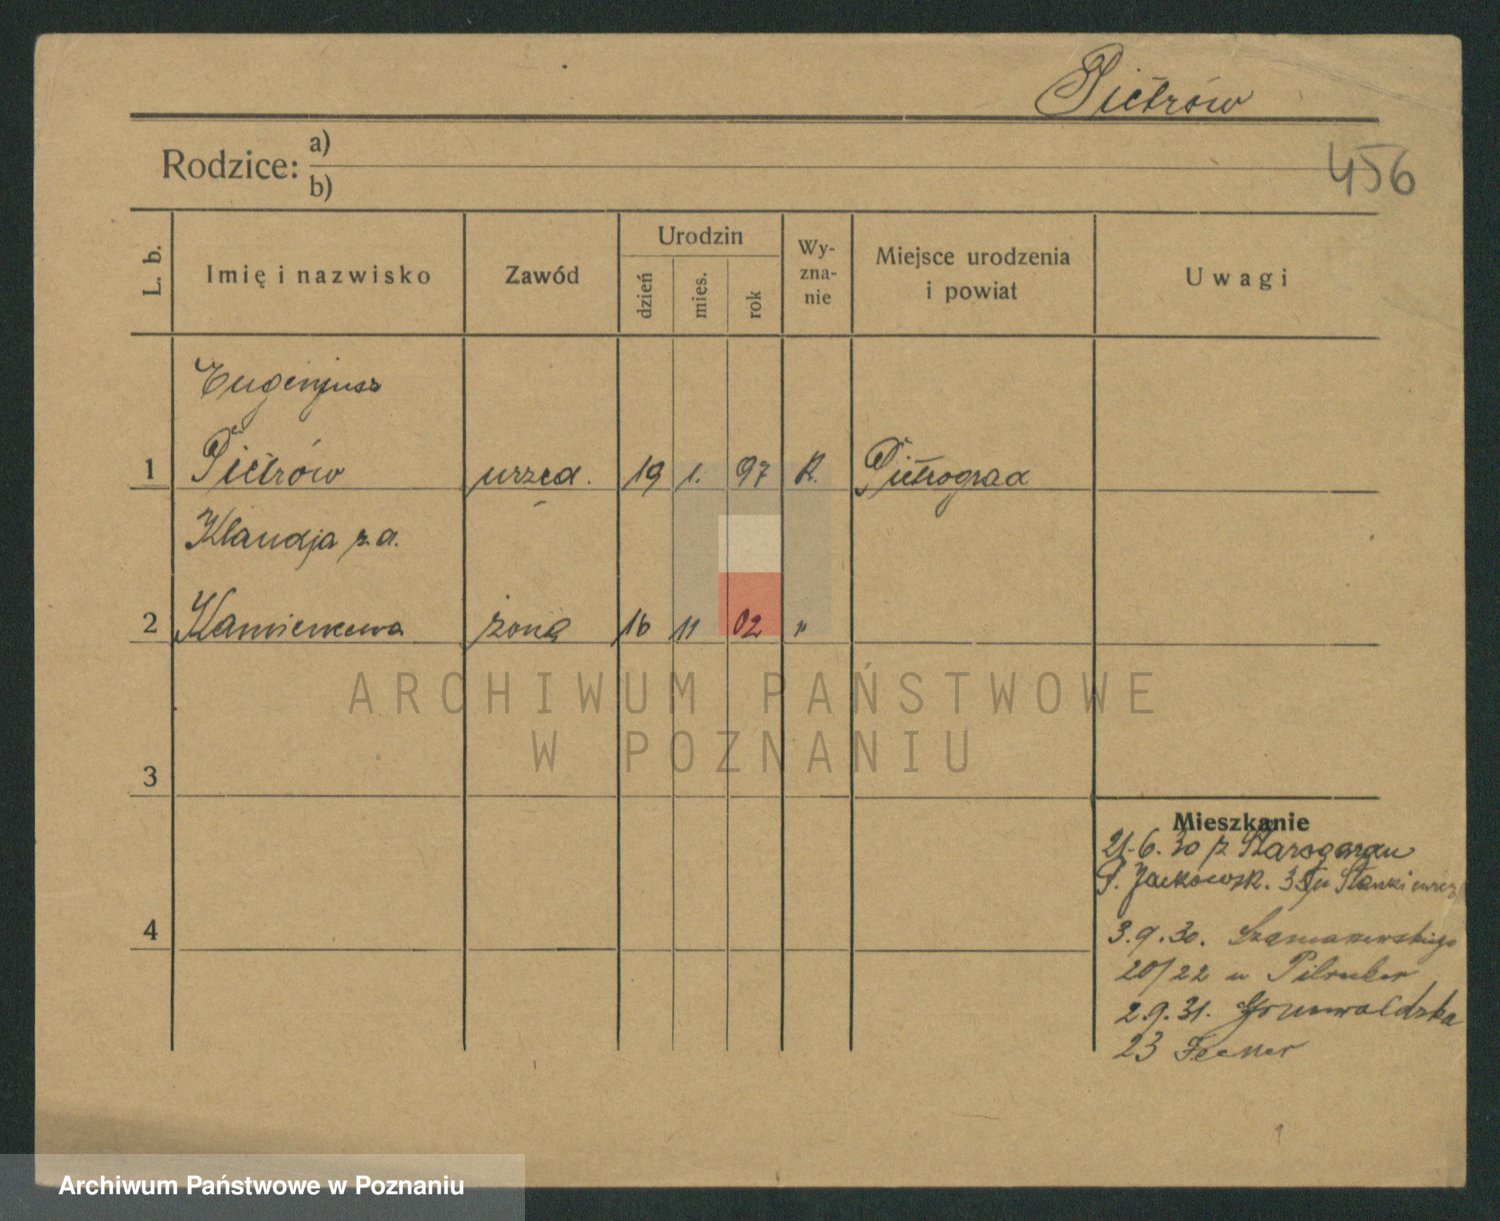 Pietrów
Rodzice: a)
b)
456
L. b.
Imię i nazwisko
Zawód
Urodzin
dzień
mies.
rok
Wy-
zna-
nie
Miejsce urodzenia
i powiat
Uwagi
Eugenjusz
1 Pietrów urzęd. 19 1. 97 R. Pietrograd
Klaudja z d.
2 żona 16 11 02 "
ARCHIWUM PAŃSTWOWE
W POZNANIU
3
Mieszkanie
21.6.30 z Starogardu
P. Jackowsk. 35 u Stankiewicz
4
3.9.30. Szamarzewskiego
20/22 u
2.9.31. Grunwaldzka
23
Archiwum Państwowe w Poznaniu